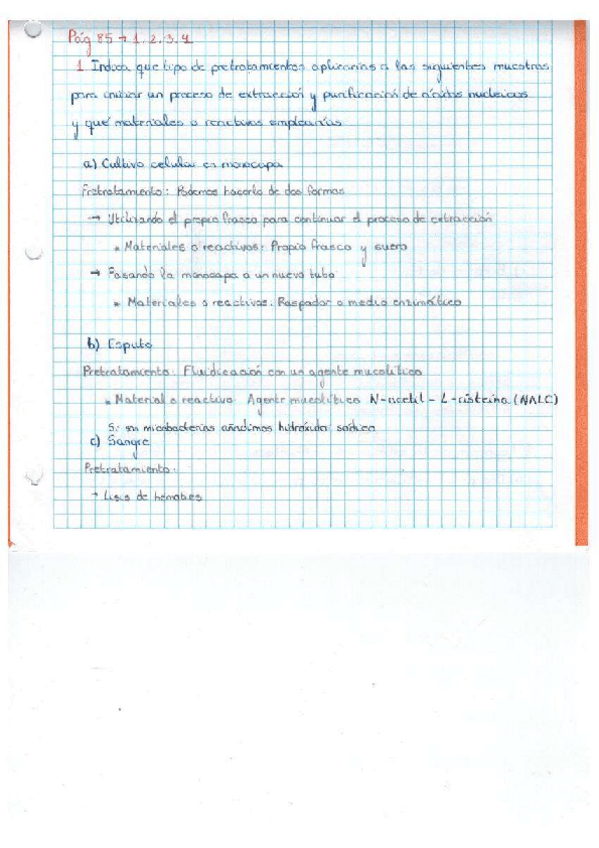 Pág 85 → 1. 2. 3. 4
1 Indica que tipo de pretratamientos aplicarías a las siguientes muestras
para iniciar un proceso de extracción y purificación de ácidos nucleicos
y qué materiales o reactivos emplearías
a) Cultivo celular en monocapa
Pretratamiento: Podemos hacerlo de dos formas
→ Utilizando el propio frasco para continuar el proceso de extracción
* Materiales o reactivos: Propio frasco y suero
→ Pasando la monocapa a un nuevo tubo
* Materiales o reactivos: Raspador o medio enzimático
b) Esputo
Pretratamiento: Fluidificación con un agente mucolítico
* Material o reactivo Agente mucolítico N-acetil-L-cisteína (NALC)
Si son micobacterias añadimos hidróxido sódico
c) Sangre
Pretratamiento:
→ Lisis de hematíes